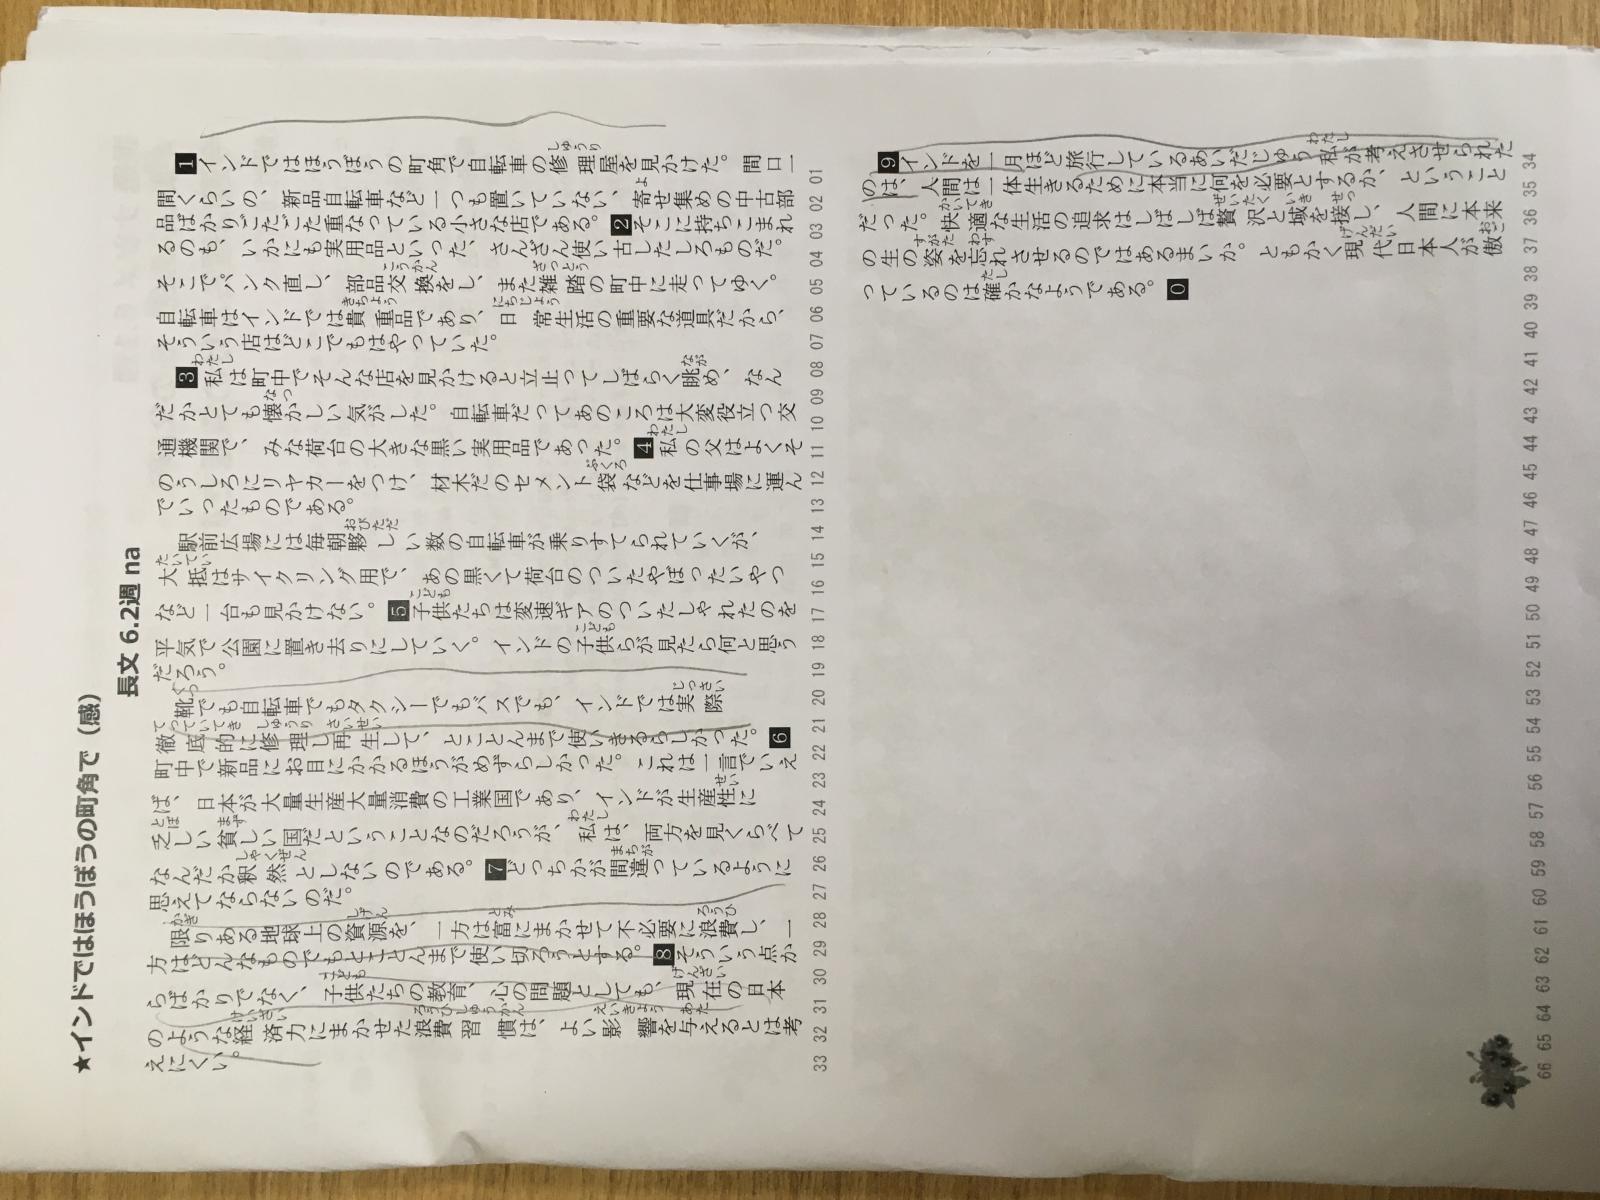 ★インドではほうぼうの町角で（感）
長文 6.2週 na
1インドではほうぼうの町角で自転車の修理屋を見かけた。間口一
間くらいの、新品自転車など一つも置いていない、寄せ集めの中古部
品ばかりごたごた重なっている小さな店である。2そこに持ちこまれ
るのも、いかにも実用品といった、さんざん使い古したしろものだ。
そこでパンク直し、部品交換をし、また雑踏の町中に走ってゆく。
自転車はインドでは貴重品であり、日常生活の重要な道具だから、
そういう店はどこでもはやっていた。
3私は町中でそんな店を見かけると立止ってしばらく眺め、なん
だかとても懐かしい気がした。自転車だってあのころは大変役立つ交
通機関で、みな荷台の大きな黒い実用品であった。4私の父はよくそ
のうしろにリヤカーをつけ、材木だのセメント袋などを仕事場に運ん
でいったものである。
駅前広場には毎朝夥しい数の自転車が乗りすてられていくが、
大抵はサイクリング用で、あの黒くて荷台のついたやぼったいやつ
など一台も見かけない。5子供たちは変速ギアのついたしゃれたのを
平気で公園に置き去りにしていく。インドの子供らが見たら何と思う
だろう。
靴でも自転車でもタクシーでもバスでも、インドでは実際
徹底的に修理し再生して、とことんまで使いきるらしかった。6
町中で新品にお目にかかるほうがめずらしかった。これは一言でいえ
ば、日本が大量生産大量消費の工業国であり、インドが生産性に
乏しい貧しい国だということなのだろうが、私は、両方を見くらべて
なんだか釈然としないのである。7どっちかが間違っているように
思えてならないのだ。
限りある地球上の資源を、一方は富にまかせて不必要に浪費し、一
方はどんなものでもとことんまで使い切ろうとする。8そういう点か
らばかりでなく、子供たちの教育、心の問題としても、現在の日本
のような経済力にまかせた浪費習慣は、よい影響を与えるとは考
えにくい。
01 02 03 04 05 06 07 08 09 10 11 12 13 14 15 16 17 18 19 20 21 22 23 24 25 26 27 28 29 30 31 32 33
9インドを一月ほど旅行しているあいだじゅう私が考えさせられた
のは、人間は一体生きるために本当に何を必要とするか、ということ
だった。快適な生活の追求はしばしば贅沢と域を接し、人間に本来
の生の姿を忘れさせるのではあるまいか。ともかく現代日本人が傲
っているのは確かなようである。0
34 35 36 37 38 39 40 41 42 43 44 45 46 47 48 49 50 51 52 53 54 55 56 57 58 59 60 61 62 63 64 65 66